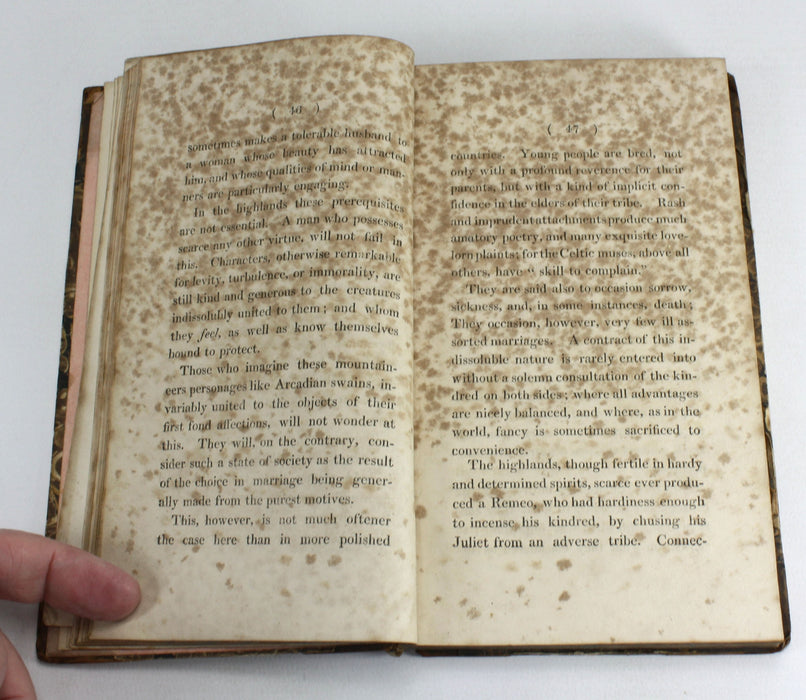 ( 46 )
sometimes makes a tolerable husband to
a woman whose beauty has attracted
him, and whose qualities of mind or man-
ners are particularly engaging.
In the highlands these prerequisites
are not essential. A man who possesses
scarce any other virtue, will not fail in
this. Characters, otherwise remarkable
for levity, turbulence, or immorality, are
still kind and generous to the creatures
indissolubly united to them; and whom
they feel, as well as know themselves
bound to protect.
Those who imagine these mountain-
eers personages like Arcadian swains, in-
variably united to the objects of their
first fond affections, will not wonder at
this. They will, on the contrary, con-
sider such a state of society as the result
of the choice in marriage being gener-
ally made from the purest motives.
This, however, is not much oftener
the case here than in more polished
( 47 )
countries. Young people are bred, not
only with a profound reverence for their
parents, but with a kind of implicit con-
fidence in the elders of their tribe. Rash
and imprudent attachments produce much
amatory poetry, and many exquisite love-
lorn plaints; for the Celtic muses, above all
others, have "skill to complain."
They are said also to occasion sorrow,
sickness, and, in some instances, death;
They occasion, however, very few ill as-
sorted marriages. A contract of this in-
dissoluble nature is rarely entered into
without a solemn consultation of the kin-
dred on both sides; where all advantages
are nicely balanced, and where, as in the
world, fancy is sometimes sacrificed to
convenience.
The highlands, though fertile in hardy
and determined spirits, scarce ever produ-
ced a Remeo, who had hardiness enough
to incense his kindred, by chusing his
Juliet from an adverse tribe. Connec-